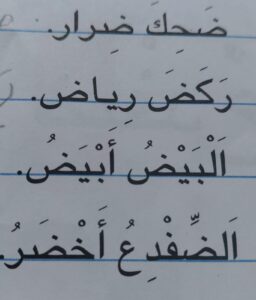 ضَحِكَ ضِرار.
رَكَضَ رِياض.
اَلْبَيْضُ أَبْيَضُ.
اَلضِّفْدِعُ أَخْضَرُ.